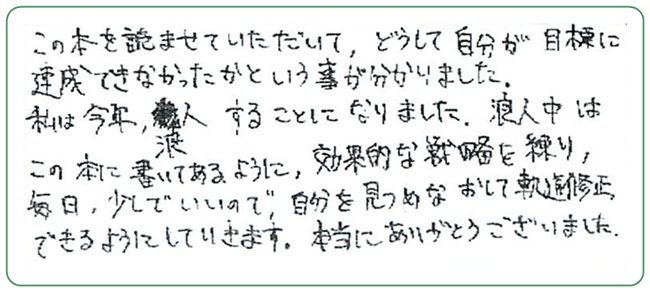 この本を読ませていただいて, どうして自分が目標に
達成できなかったかという事が分かりました.
私は今年, 浪人することになりました. 浪人中は
この本に書いてあるように, 効果的な戦略を練り,
毎日, 少しでいいので, 自分を見つめなおして軌道修正
できるようにしていきます。本当にありがとうございました.